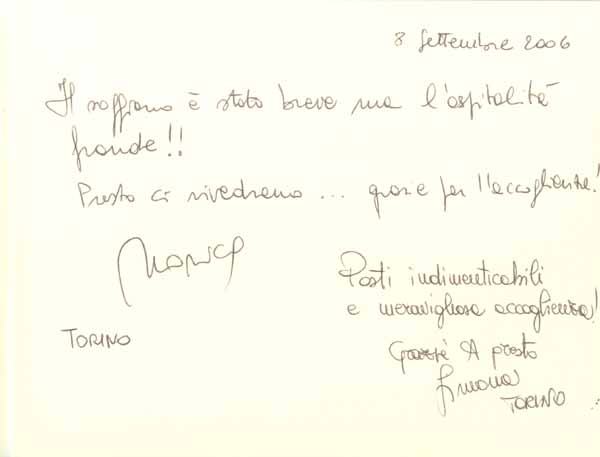 8 Settembre 2006
Il soffiano è stato breve ma l'ospitalità
grande!!
Presto ci rivedremo ... grazie per l'accoglienza!
TORINO
Posti indimenticabili
e meravigliosa accoglienza!
Grazie A presto
Simona
TORINO